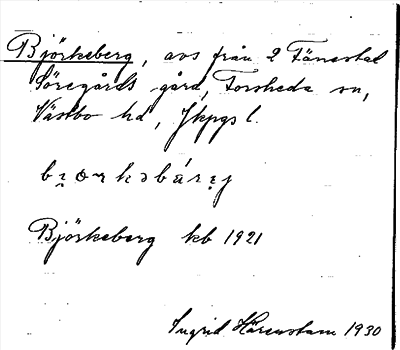 Björkeberg, avs från 2 Fänestad
Söregårds gård, Forsheda sn,
Västbo hd, Jkpgs l.
Björkeberg kb 1921
Ingrid Härenstam 1930